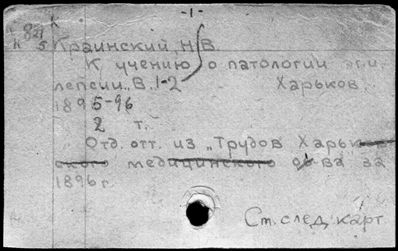 -1-
К
84
5
Краинский, Н.В.
К учению о патологии эпи
лепсии. В. 1-2 Харьков,
1895-96
2 т.
Отд. отт. из „Трудов Харьк
медицинского о-ва за
1896 г.
См. след. карт.